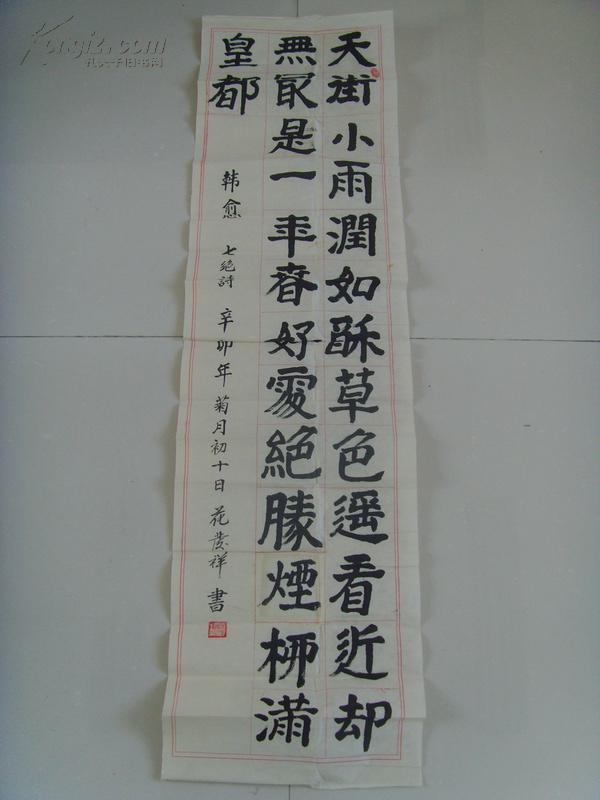 天街小雨潤如酥草色遥看近却
無最是一年春好處絕勝煙柳滿
皇都
韩愈 七絕詩 辛卯年菊月初十日 花發祥書
Kongfz.com
孔夫子旧书网